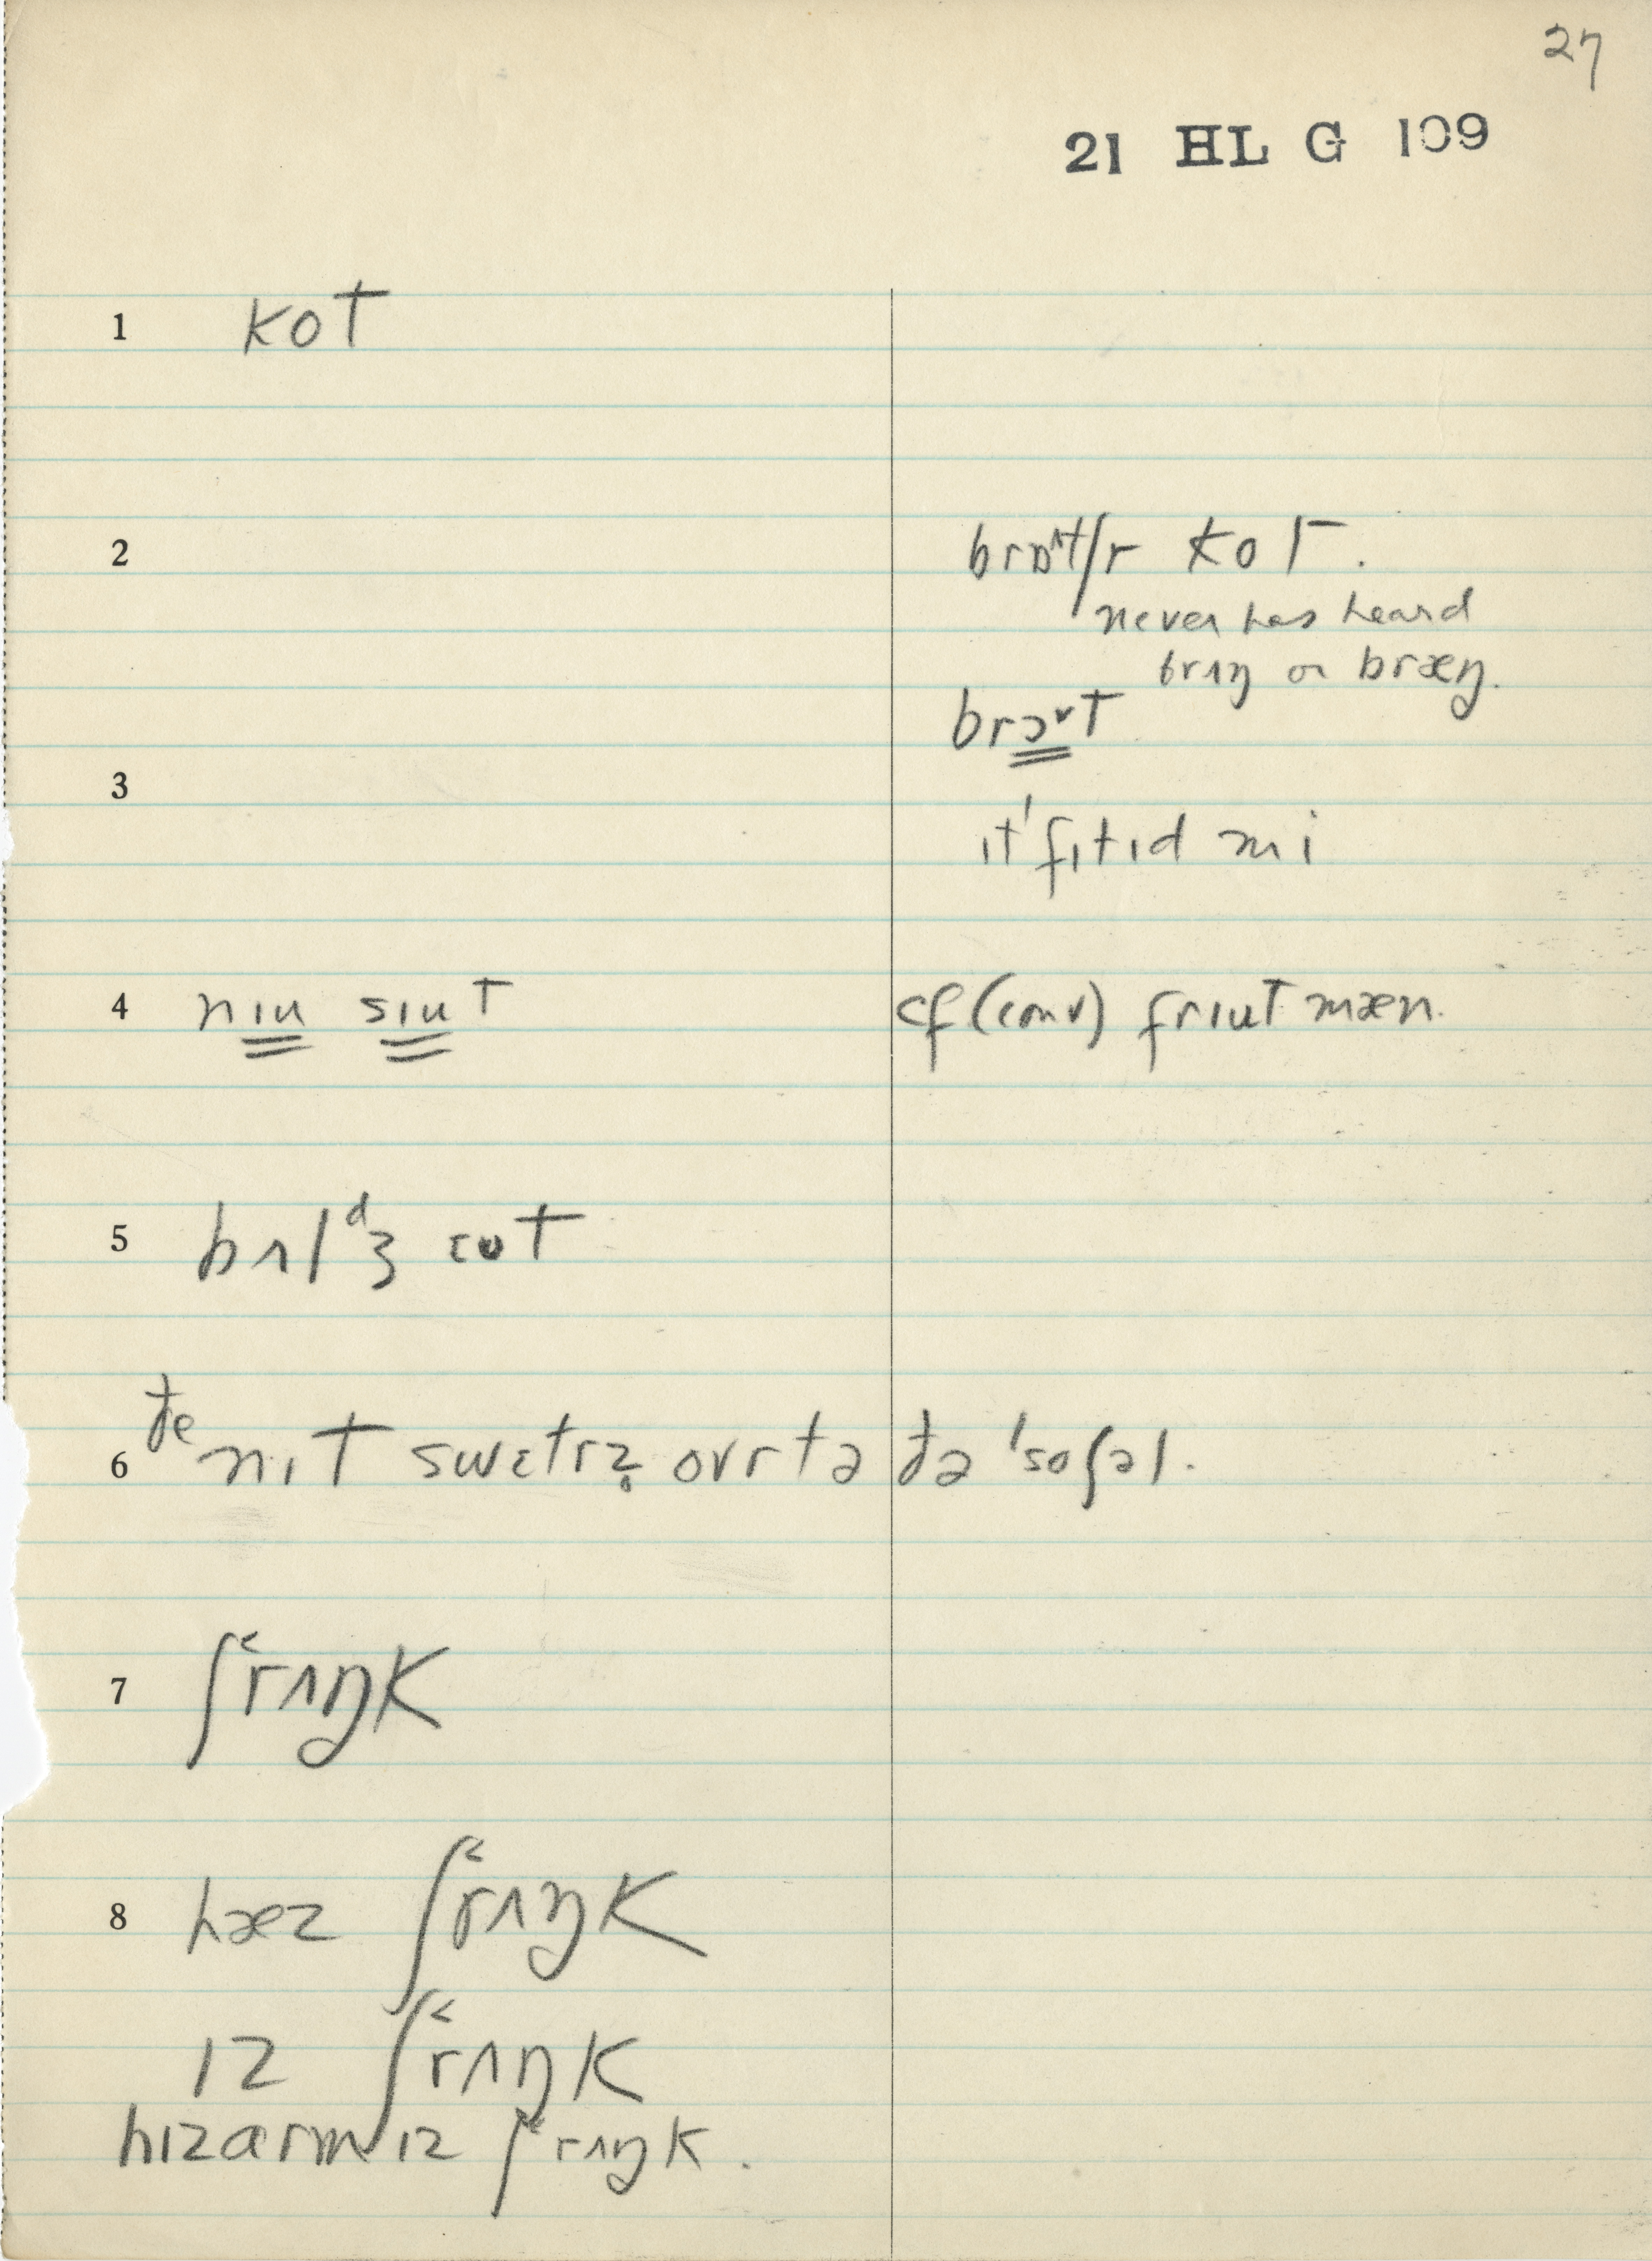 27
21 HL G 109
1 kot
2 brɒ^t/r kot.
never has heard
brʌŋ or bræŋ.
brɔ˅t
3
ɪt 'fɪtɪd mi
4 nɪu sɪut cf (conv) frɪut mæn.
5 bʌlᵈʒ ɛut
6 ðe nɪt swɛtrz̥ ovr tə ðə 'soʃəl.
7 ʃ˂rʌŋk
8 hæz ʃ˂rʌŋk
ɪz ʃ˂rʌŋk
hɪz arm ɪz ʃ˂rʌŋk.